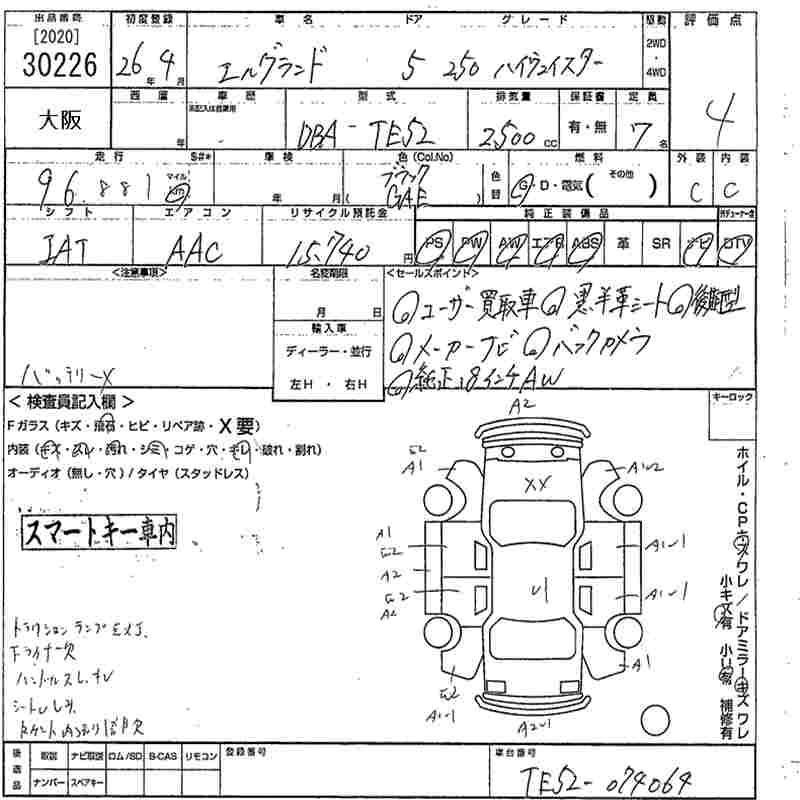 出品番号 初度登録 車名 ドア グレード 駆動 評価点
[2020]
30226 26年 9月 エルグランド 5 250 ハイウェイスター 2WD・4WD 4
西暦 車歴 型式 排気量 保証書 定員
未記入は自家用
大阪 年 DBA-TE52 2500cc 有・無 7名
走行 S#* 車検 色(Col.No) 燃料 外装 内装
96.881 マイル km 年 月 ブラック (GAE) 色替 G・D・電気(その他) C C
シフト エアコン リサイクル預託金 純正装備品
IAT AAC 15.740円 PS PW AW エアB ABS 革 SR ナビ DTV
<注意事項> 名変期限 <セールスポイント>
月 日
ユーザー買取車 黒半革シート 後期型
輸入車
ディーラー・並行 メーカーナビ バックカメラ
左H・右H 純正18インチAW
バッテリーX
<検査員記入欄> キーロック
Fガラス(キズ・飛石・ヒビ・リペア跡・X要)
内装(キズ・汚れ・シミ・コゲ・穴・破れ・割れ)
オーディオ(無し・穴)/タイヤ(スタッドレス)
スマートキー車内
A2
E2
A1
XX
A1
E2
A2
E2
A2
U1
A1
A2U1
ドライナー欠
ハンドルスレ
シートスレ
ホイル・CPキズワレ/ドアミラーキズワレ
小キズ有 小凹有 補修有
後返品 取説 ナビ取説 ロム/SD B-CAS リモコン 登録番号 車台番号
ナンバー スペアキー TE52-074064